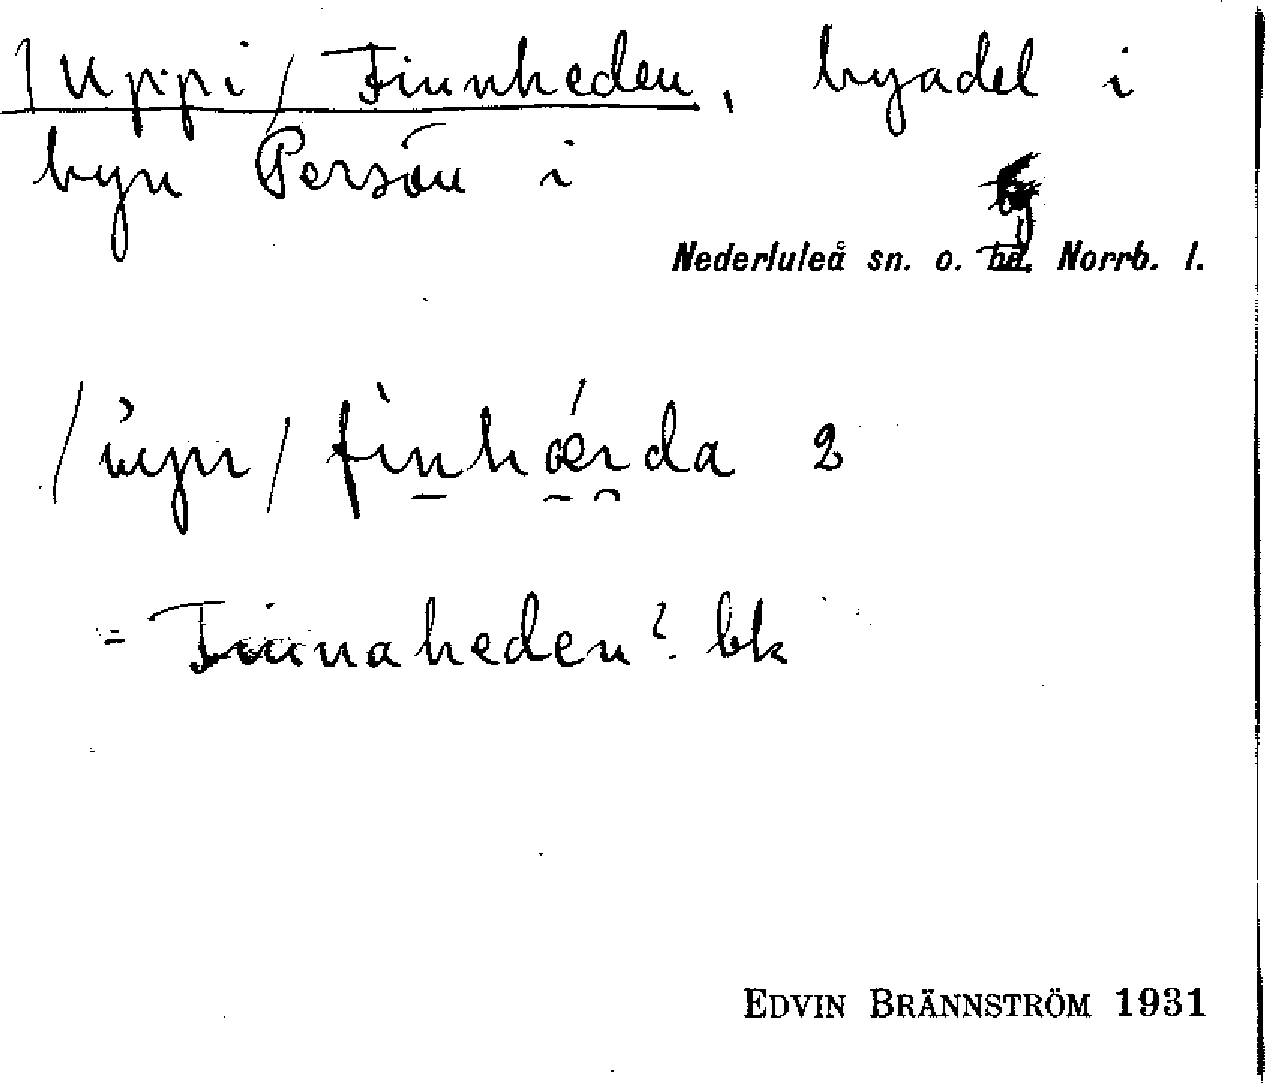 /Uppi/ Finnheden, byadel i
byn Persön i
Nederluleå sn. o. Norrb. l.
/upi/ finhærda 2
= Finnaheden? bk
EDVIN BRÄNNSTRÖM 1931